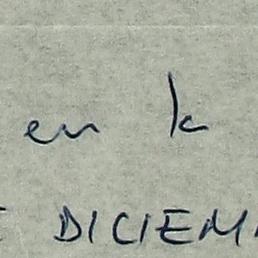 en la
DICIEM